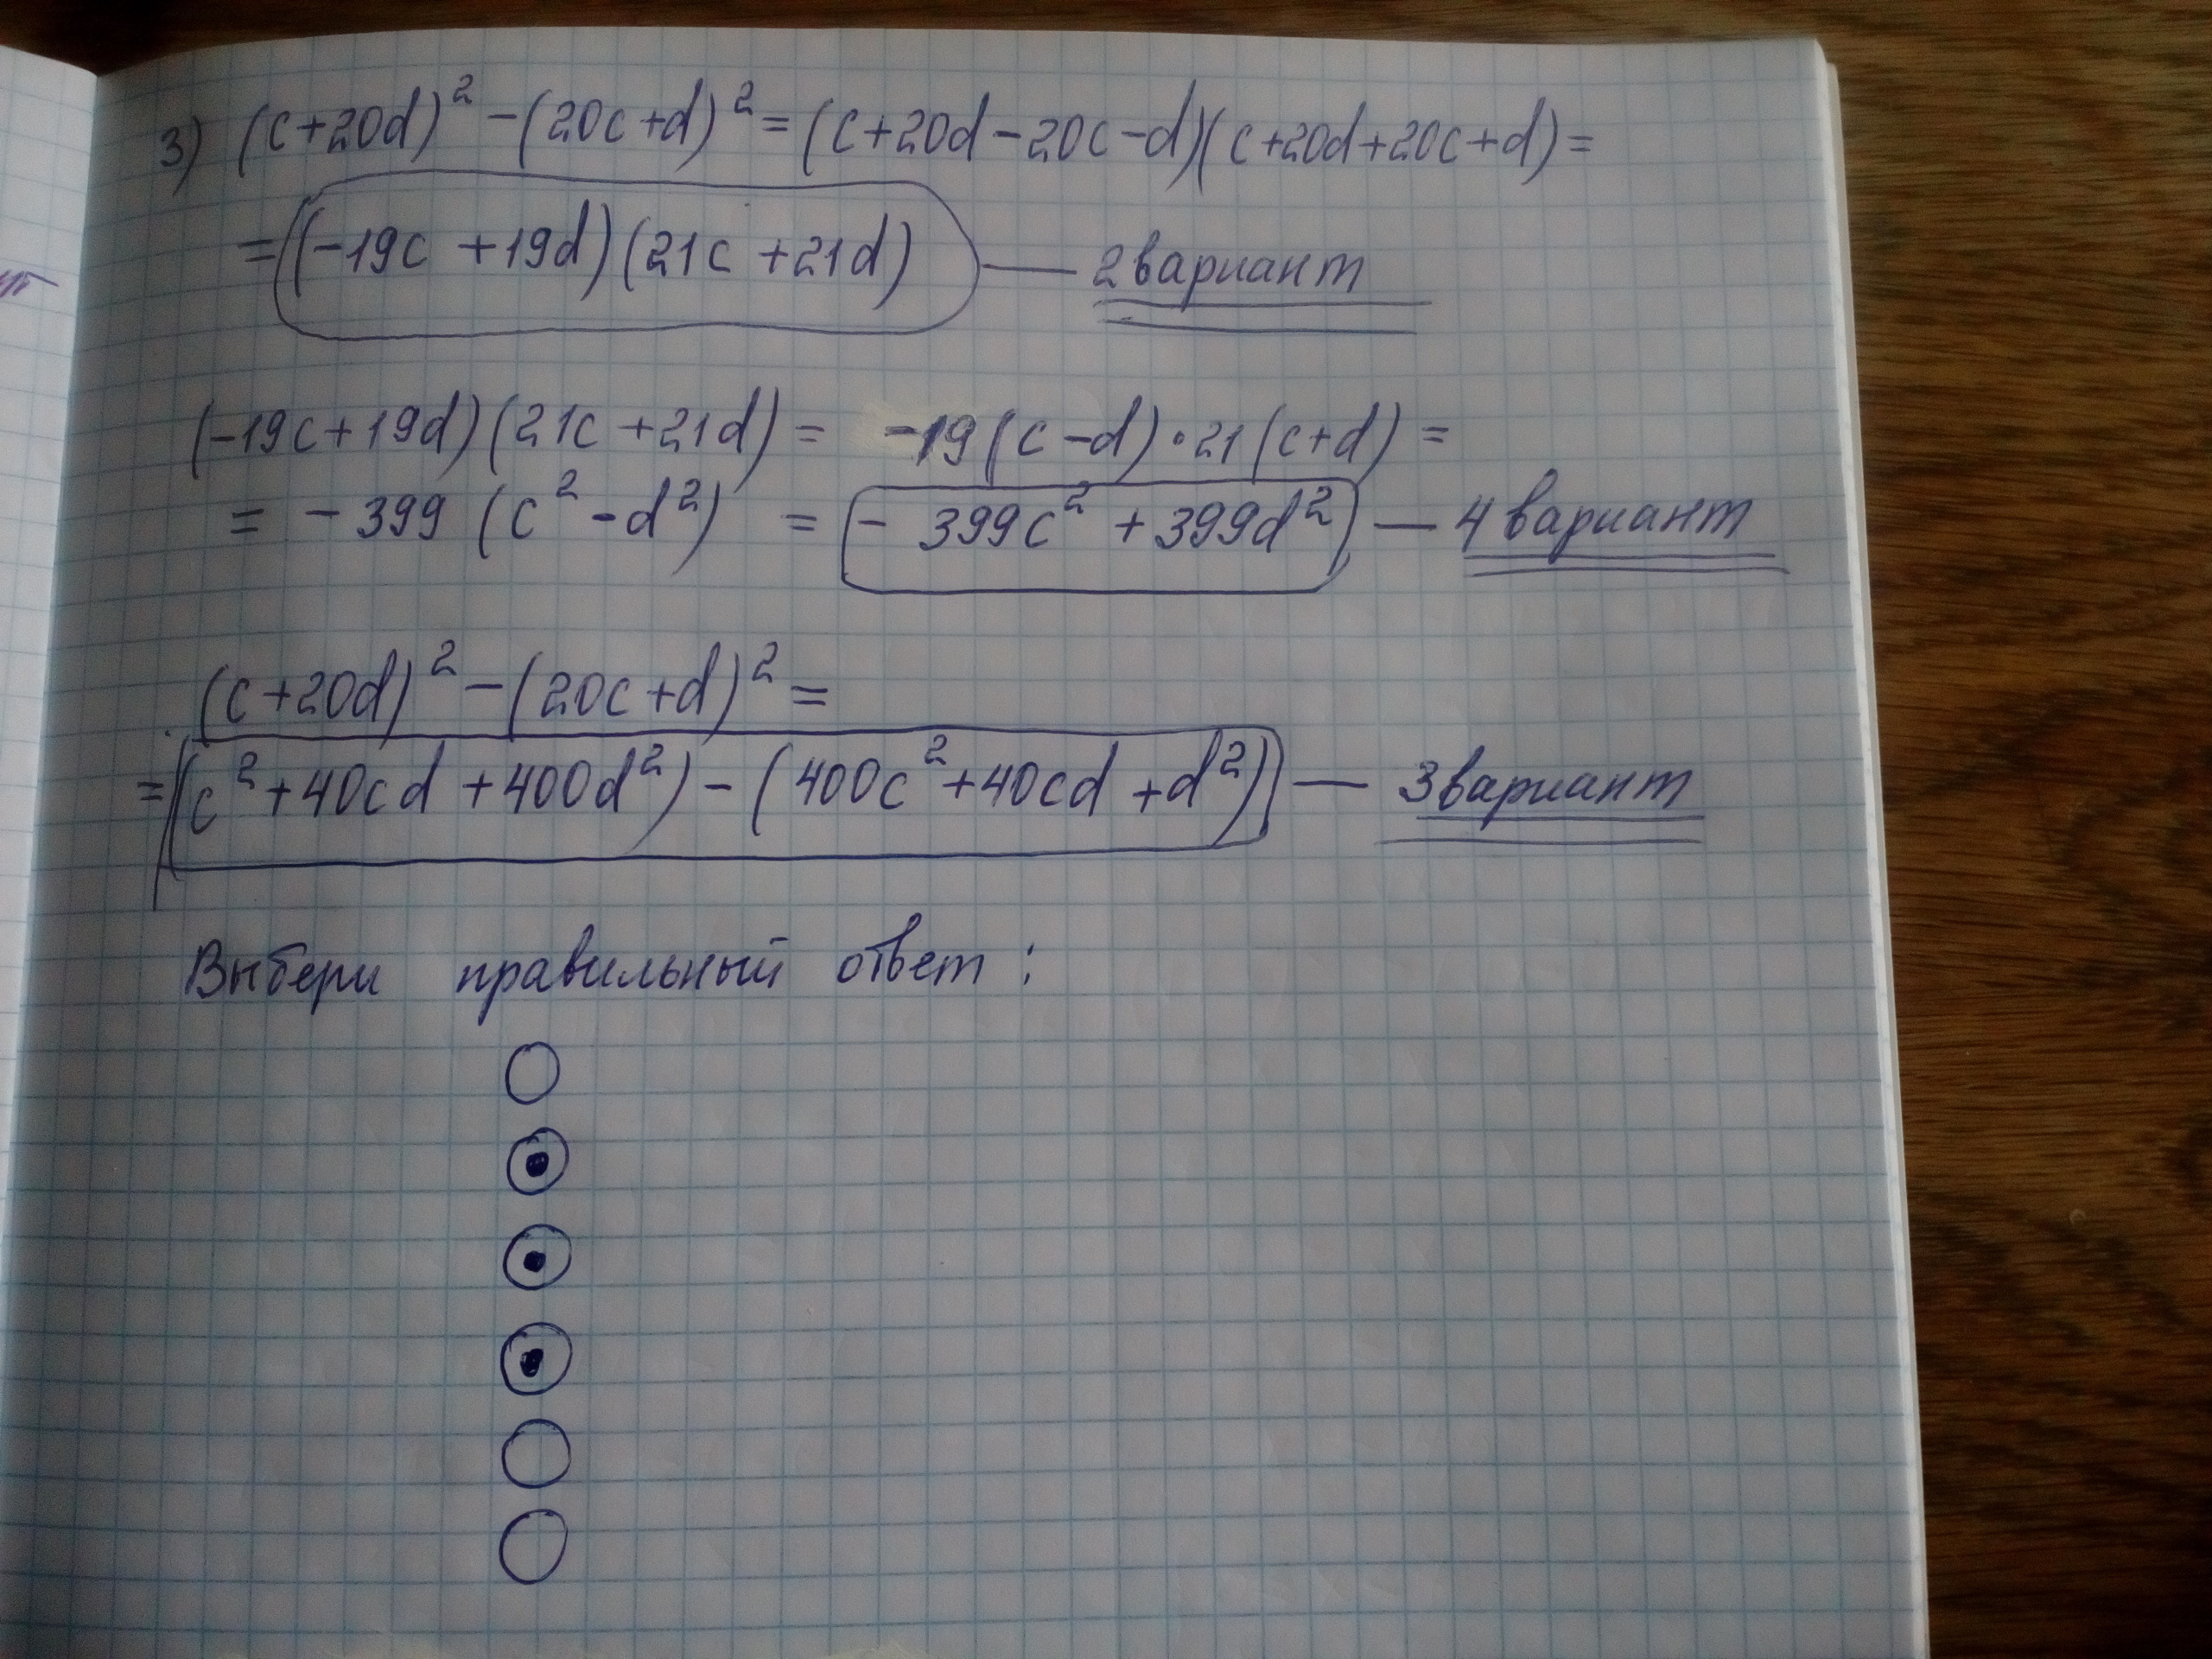 3) (c+20d)² -(20c+d)² = (c+20d-20c-d)(c+20d+20c+d)=
= (-19c +19d)(21c +21d) — 2 вариант
(-19c+19d)(21c+21d) = -19(c-d)·21(c+d) =
= -399 (c²-d²) = -399c² +399d² — 4 вариант
(c+20d)² -(20c+d)² =
= (c²+40cd+400d²)-(400c²+40cd+d²) — 3 вариант
Выбери правильный ответ :